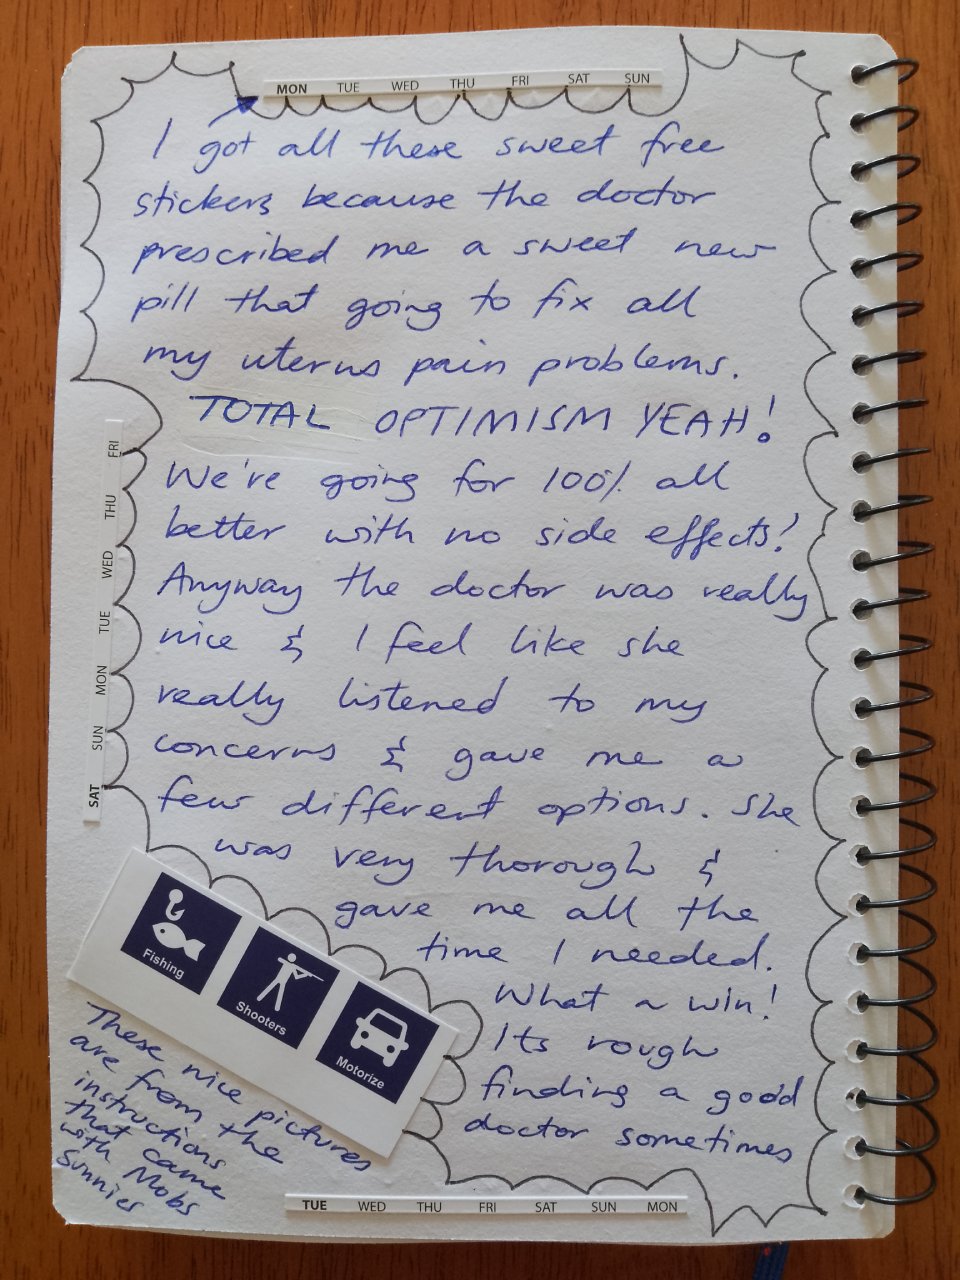 MON TUE WED THU FRI SAT SUN
I got all these sweet free
stickers because the doctor
prescribed me a sweet new
pill that going to fix all
my uterus pain problems.
TOTAL OPTIMISM YEAH!
We're going for 100% all
better with no side effects!
Anyway the doctor was really
nice & I feel like she
really listened to my
concerns & gave me a
few different options. She
was very thorough &
gave me all the
time I needed.
What a win!
Its rough
finding a good
doctor sometimes
SAT SUN MON TUE WED THU FRI
Fishing
Shooters
Motorize
These nice pictures
are from the
instructions
that came
with Mobs
Sunnies
TUE WED THU FRI SAT SUN MON